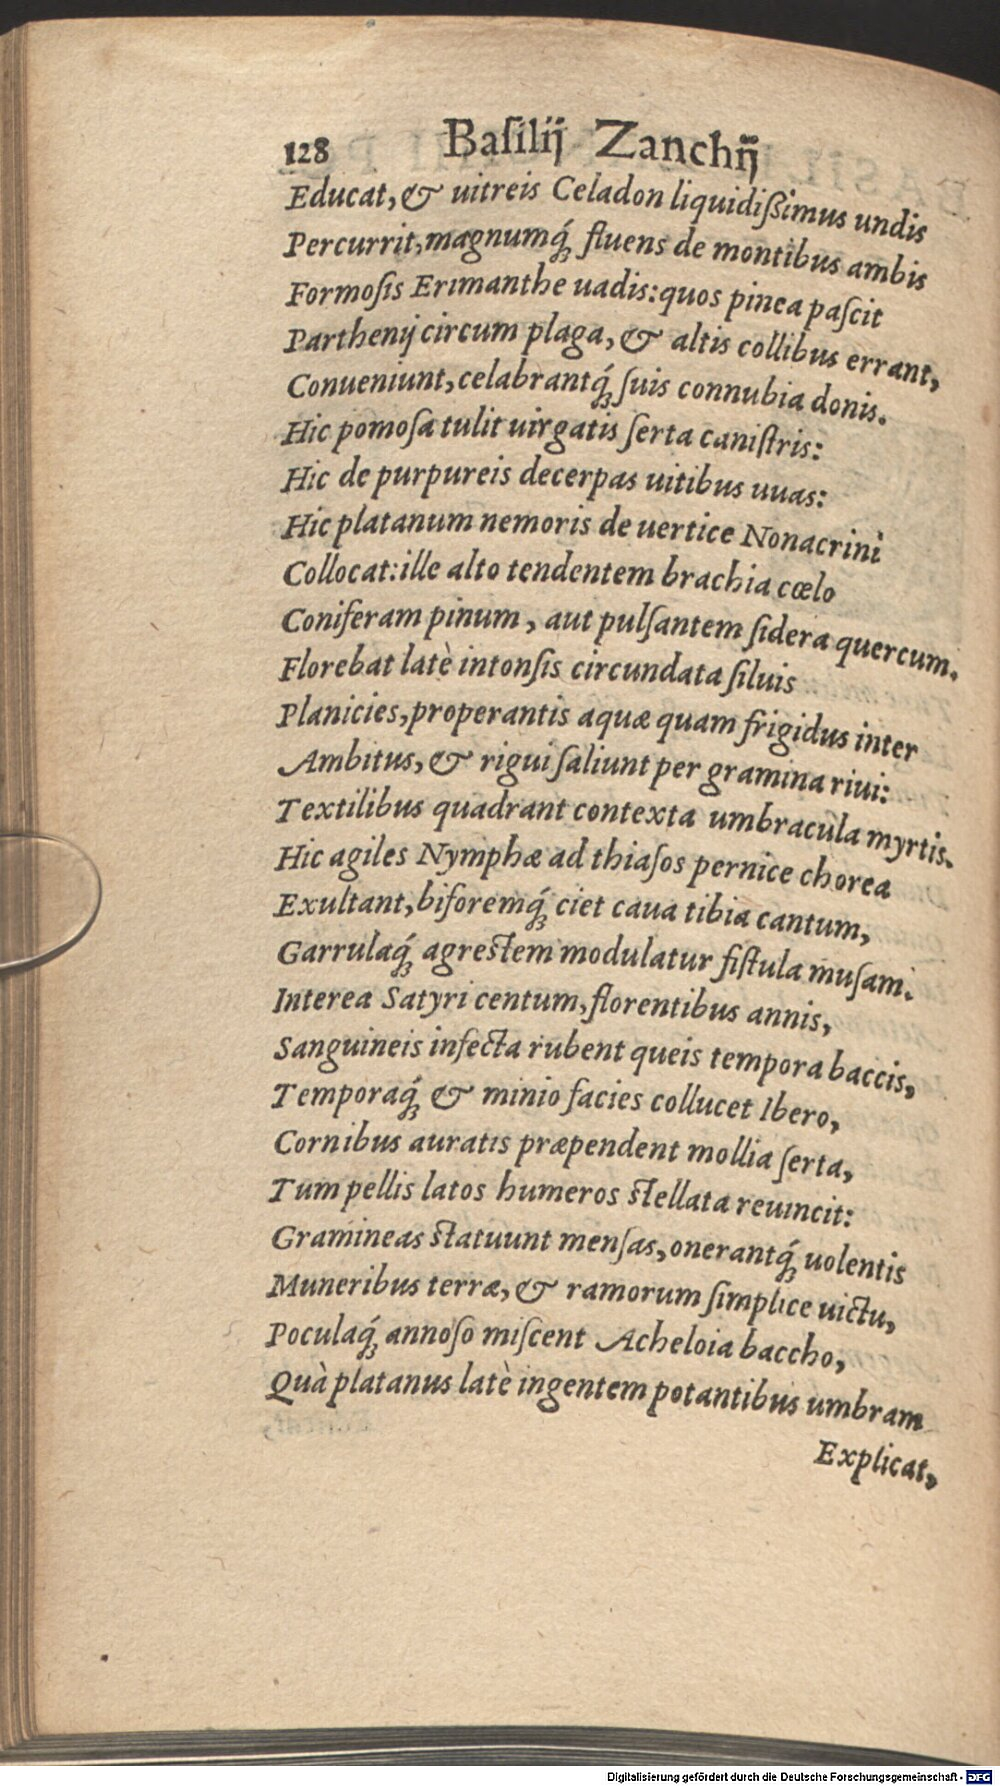 128 Baſilij Zanchij
Educat, & uitreis Celadon liquidißimus undis
Percurrit, magnumq́; fluens de montibus ambis
Formoſis Erimanthe uadis: quos pinea paſcit
Parthenij circum plaga, & altis collibus errant,
Conueniunt, celabrantq́; ſuis connubia donis.
Hic pomoſa tulit uirgatis ſerta caniſtris:
Hic de purpureis decerpas uitibus uuas:
Hic platanum nemoris de uertice Nonacrini
Collocat: ille alto tendentem brachia cœlo
Coniferam pinum, aut pulſantem ſidera quercum.
Florebat latè intonſis circundata ſiluis
Planicies, properantis aquæ quam frigidus inter
Ambitus, & rigui ſaliunt per gramina riui:
Textilibus quadrant contexta umbracula myrtis.
Hic agiles Nymphæ ad thiaſos pernice chorea
Exultant, biforemq́; ciet caua tibia cantum,
Garrulaq́; agreſtem modulatur fiſtula muſam.
Interea Satyri centum, florentibus annis,
Sanguineis infecta rubent queis tempora baccis,
Temporaq́; & minio facies collucet Ibero,
Cornibus auratis præpendent mollia ſerta,
Tum pellis latos humeros ſtellata reuincit:
Gramineas ſtatuunt menſas, onerantq́; uolentis
Muneribus terræ, & ramorum ſimplice uictu,
Poculaq́; annoſo miſcent Acheloia baccho,
Quà platanus latè ingentem potantibus umbram
Explicat,
Digitalisierung gefördert durch die Deutsche Forschungsgemeinschaft - DFG